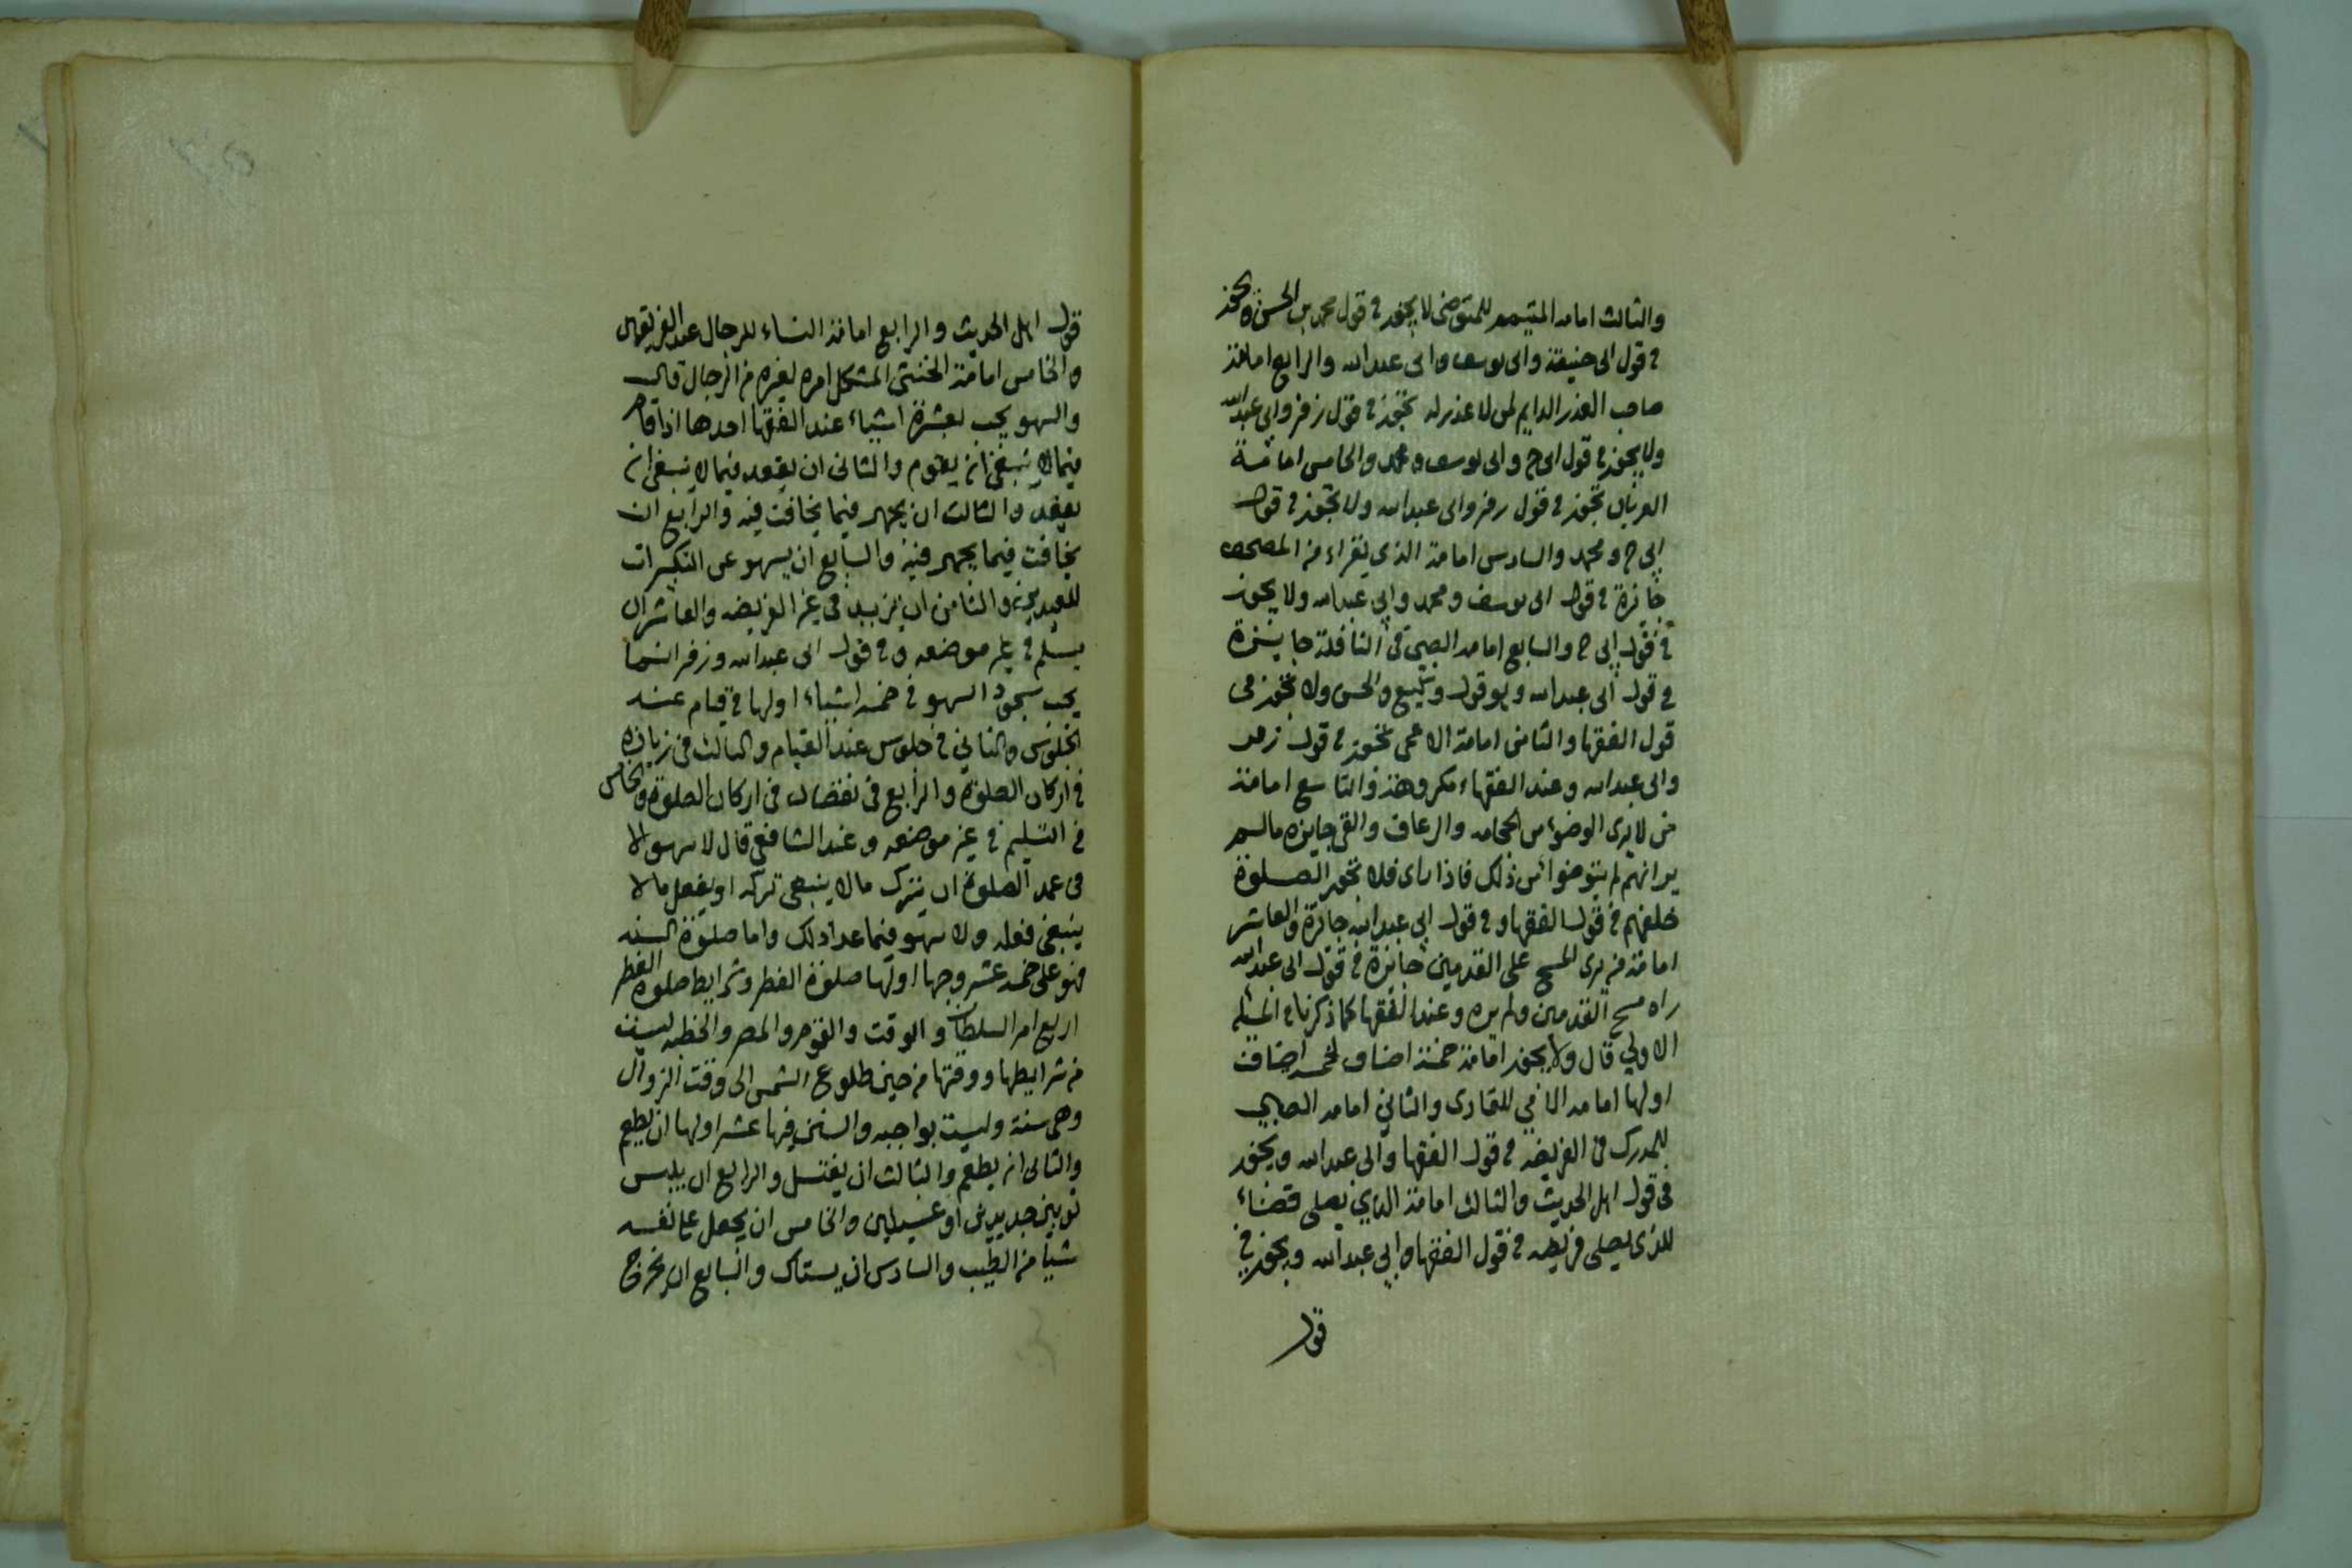 والثالث امامه المتيمم للمتوضى لا يجوز في قول محمد بن الحسن ويجوز
في قول ابى حنيفة وابى يوسف وابى عبد الله والرابع امامة
صاحب العذر الدايم لمن لا عذر له يجوز في قول زفر وابى عبد الله
ولا يجوز في قول ابى ح وابى يوسف ومحمد والخامس امامة
العريان تجوز في قول زفر وابى عبد الله ولا تجوز في قول
ابى ح ومحمد والسادس امامة الذى يقراء من المصحف
جايزة في قول ابى يوسف ومحمد وابى عبد الله ولا يجوز
في قول ابى ح والسابع امامه الصبى في النافلة جايزة
في قول ابى عبد الله وهو قول وكيع والحسن ولا تجوز فى
قول الفقها والثامن امامة الاعمى تجوز في قول زفر
وابى عبد الله وعند الفقهاء مكروهة والتاسع امامة
من لا يرى الوضوء من الحجامه والرعاف والقى جايزه ما لم
ير انهم لم يتوضوا من ذلك فاذا راى فلا تجوز الصلوة
خلفهم في قول الفقها وفي قول ابى عبد الله جائزة والعاشر
امامة من يرى المسح على القدمين جايزة في قول ابى عبد الله
راه مسح القدمين ولم يره وعند الفقها كما ذكرنا في المسئله
الاولى قال ولا يجوز امامة خمسة اصناف لخمسه اصناف
اولها امامه الامي للقارى والثاني امامه الصبي
للمدرك في الفريضه في قول الفقها وابى عبد الله ويجوز
فى قول اهل الحديث والثالث امامة الذي يصلى قضاء
للذى يصلى فريضه في قول الفقها وابى عبد الله ويجوز في
قول
قول اهل الحديث والرابع امامة النساء للرجال عند الفريقين
والخامس امامة الخنثى المشكل امره لغيره من الرجال قال
والسهو يجب لعشرة اشياء عند الفقها احدها اذا قام
فيما لا ينبغي ان يقوم والثانى ان يقعد فيما لا ينبغى ان
يقعد والثالث ان يجهر فيما يخافت فيه والرابع ان
يخافت فيما يجهر فيه والسابع ان يسهو عن التكبيرات
للعيدين والثامن ان يزيد في غير الفريضه والعاشر ان
يسلم في غير موضعه وفى قول ابى عبد الله وزفر انما
يجب سجود السهو في خمسه اشياء اولها في قيام عند
الجلوس والثاني في جلوس عند القيام والثالث في زيادة
في اركان الصلوة والرابع في نقصان في اركان الصلوة والخامس
في التسليم في غير موضعه وعند الشافعي قال لا سهو الا
فى عمد الصلوة ان يترك ما لا ينبغى تركه او يفعل ما لا
ينبغى فعله ولا سهو فيما عدا ذلك واما صلوة السنه
فهو على خمسه عشر وجها اولها صلوة الفطر وشرايط صلوة الفطر
اربع امر السلطان والوقت والقوم والمصر والخطبه ليست
من شرايطها ووقتها من حين طلوع الشمس الى وقت الزوال
وهى سنة وليست بواجبه والسنن فيها عشر اولها ان يطعم
والثانى ان يطعم والثالث ان يغتسل والرابع ان يلبس
ثوبين جديدين او غسيلين والخامس ان يجعل على نفسه
شيا من الطيب والسادس ان يستاك والسابع ان يخرج